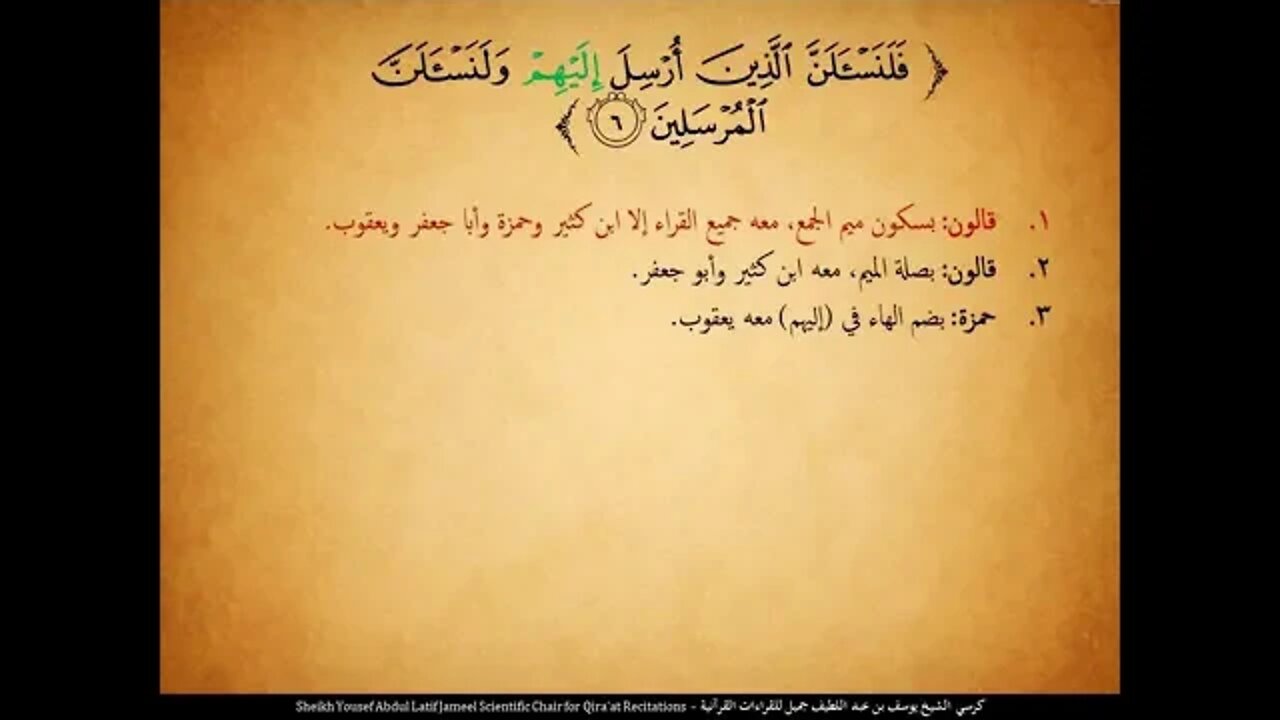 ﴿ فَلَنَسْـَٔلَنَّ ٱلَّذِينَ أُرْسِلَ إِلَيْهِمْ وَلَنَسْـَٔلَنَّ
ٱلْمُرْسَلِينَ ٦ ﴾
١. قالون: بسكون ميم الجمع، معه جميع القراء إلا ابن كثير وحمزة وأبا جعفر ويعقوب.
٢. قالون: بصلة الميم، معه ابن كثير وأبو جعفر.
٣. حمزة: بضم الهاء في (إليهم) معه يعقوب.
Sheikh Yousef Abdul Latif Jameel Scientific Chair for Qira'at Recitations – كرسي الشيخ يوسف بن عبد اللطيف جميل للقراءات القرآنية